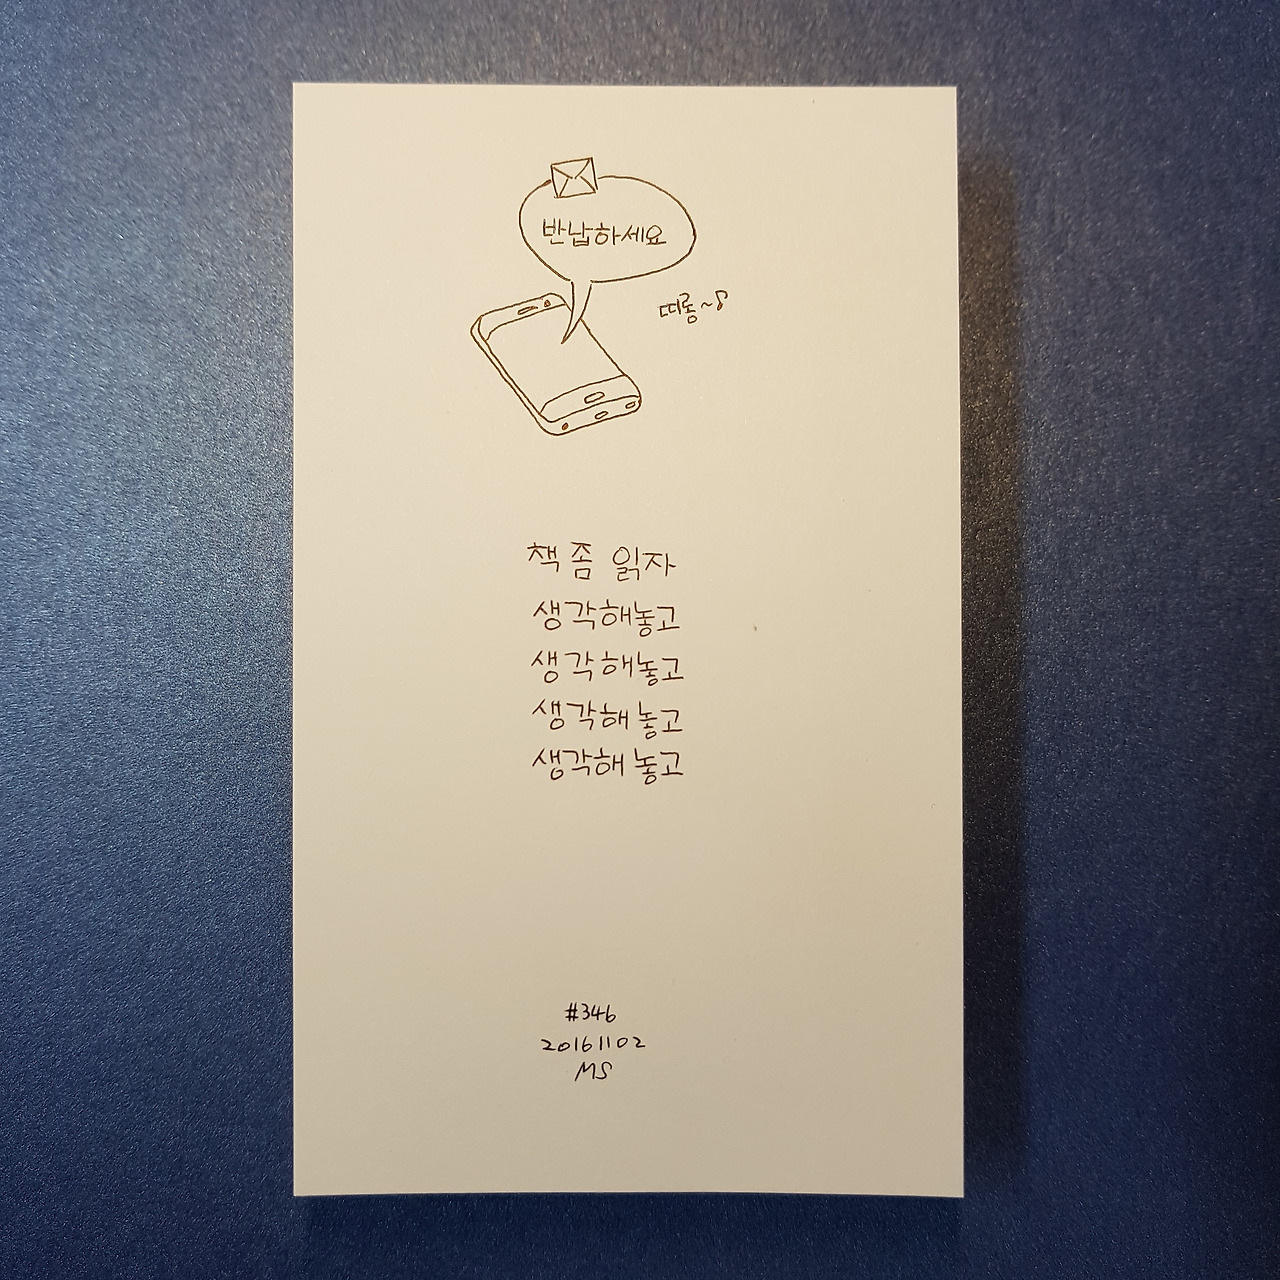 반납하세요
띠롱~♪
책 좀 읽자
생각해놓고
생각해놓고
생각해놓고
생각해놓고
#346
20161102
MS